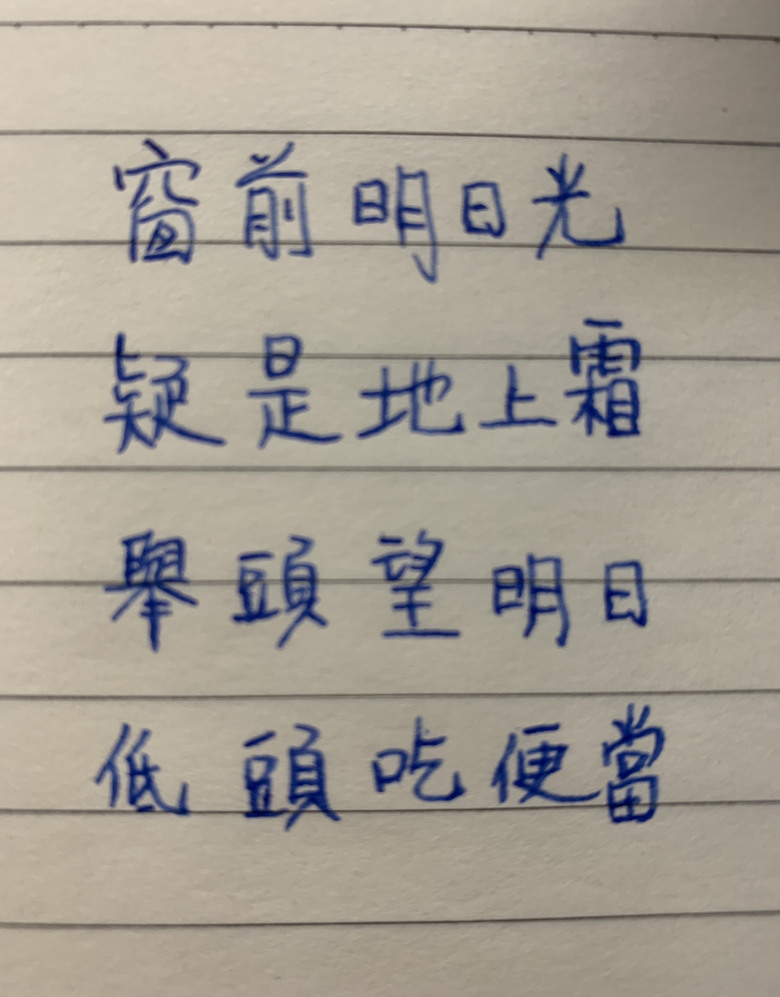 窗前明日光
疑是地上霜
舉頭望明日
低頭吃便當